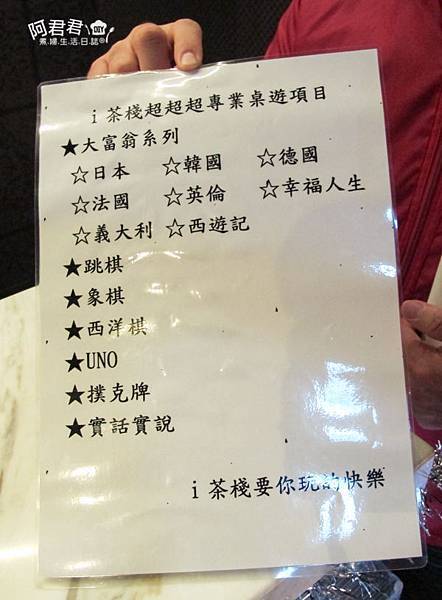 阿君君 DIY
煮.婦.生.活.日.誌
i 茶棧超超超專業桌遊項目
★大富翁系列
☆日本 ☆韓國 ☆德國
☆法國 ☆英倫 ☆幸福人生
☆義大利 ☆西遊記
★跳棋
★象棋
★西洋棋
★UNO
★撲克牌
★實話實說
i 茶棧要你玩的快樂